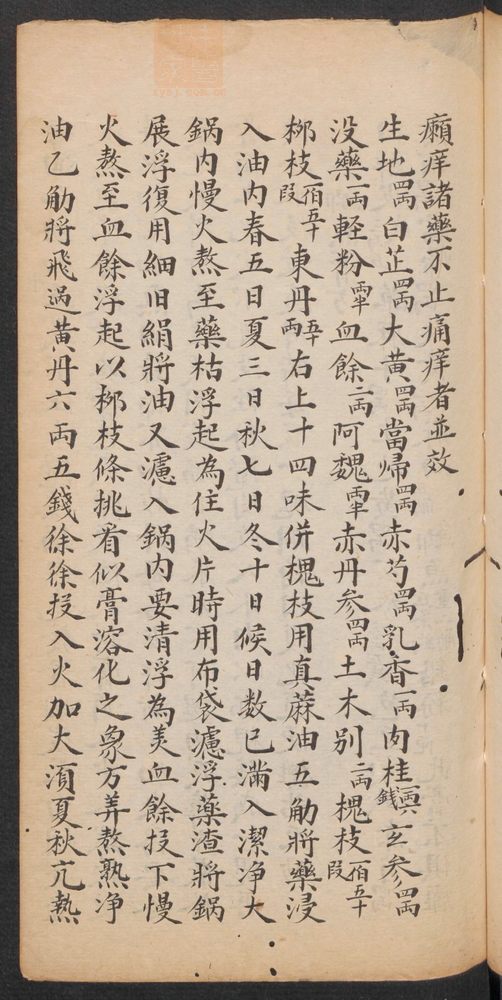 癩痒諸藥不止痛痒者並效
生地四両白芷四両大黃四両當帰四両赤芍四両乳香一両肉桂一両六錢玄參四両
没藥一両軽粉両半血餘二両阿魏両半赤丹参四両土木别二両槐枝佰五十段
栁枝佰五十段東丹五十両右上十四味併槐枝用真蔴油五觔將藥浸
入油内春五日夏三日秋七日冬十日候日数已滿入潔净大
鍋内慢火熬至藥枯浮起為住火片時用布袋濾浮藥渣將鍋
展浮復用細旧絹將油又濾入鍋内要清浮為美血餘投下慢
火熬至血餘浮起以栁枝條挑看似膏溶化之象方美熬熟净
油乙觔將飛過黃丹六両五錢徐徐投入火加大湏夏秋亢熱